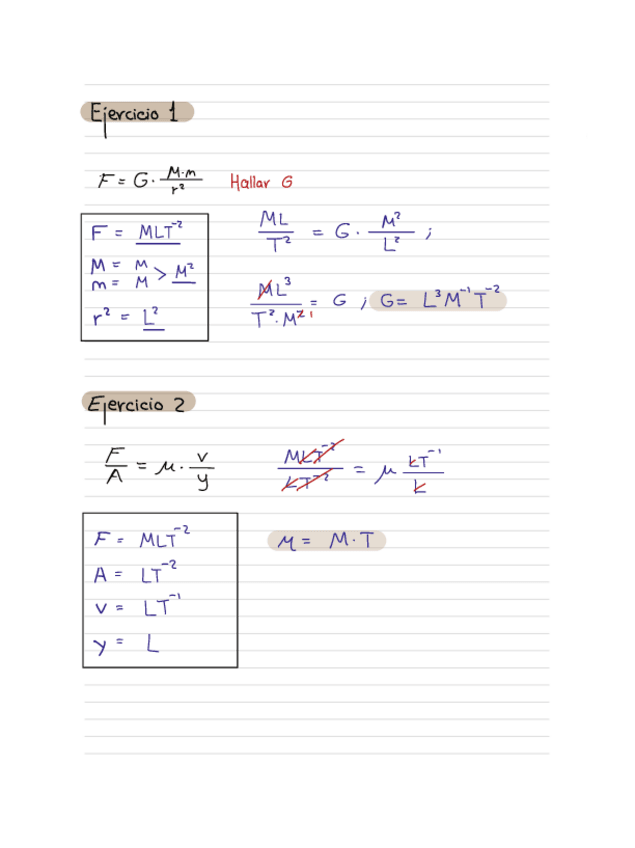 Ejercicio 1
F = G · M·m / r² Hallar G
F = MLT⁻²
M = M
m = M > M²
r² = L²
ML / T² = G · M² / L² ;
ML³ / T² · M² ¹ = G ; G = L³ M⁻¹ T⁻²
Ejercicio 2
F / A = μ · v / y
MLT⁻² / LT⁻² = μ LT⁻¹ / L
F = MLT⁻²
A = LT⁻²
v = LT⁻¹
y = L
μ = M · T